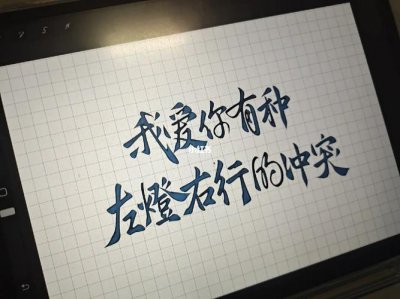 我爱你有种
左燈右行的冲突